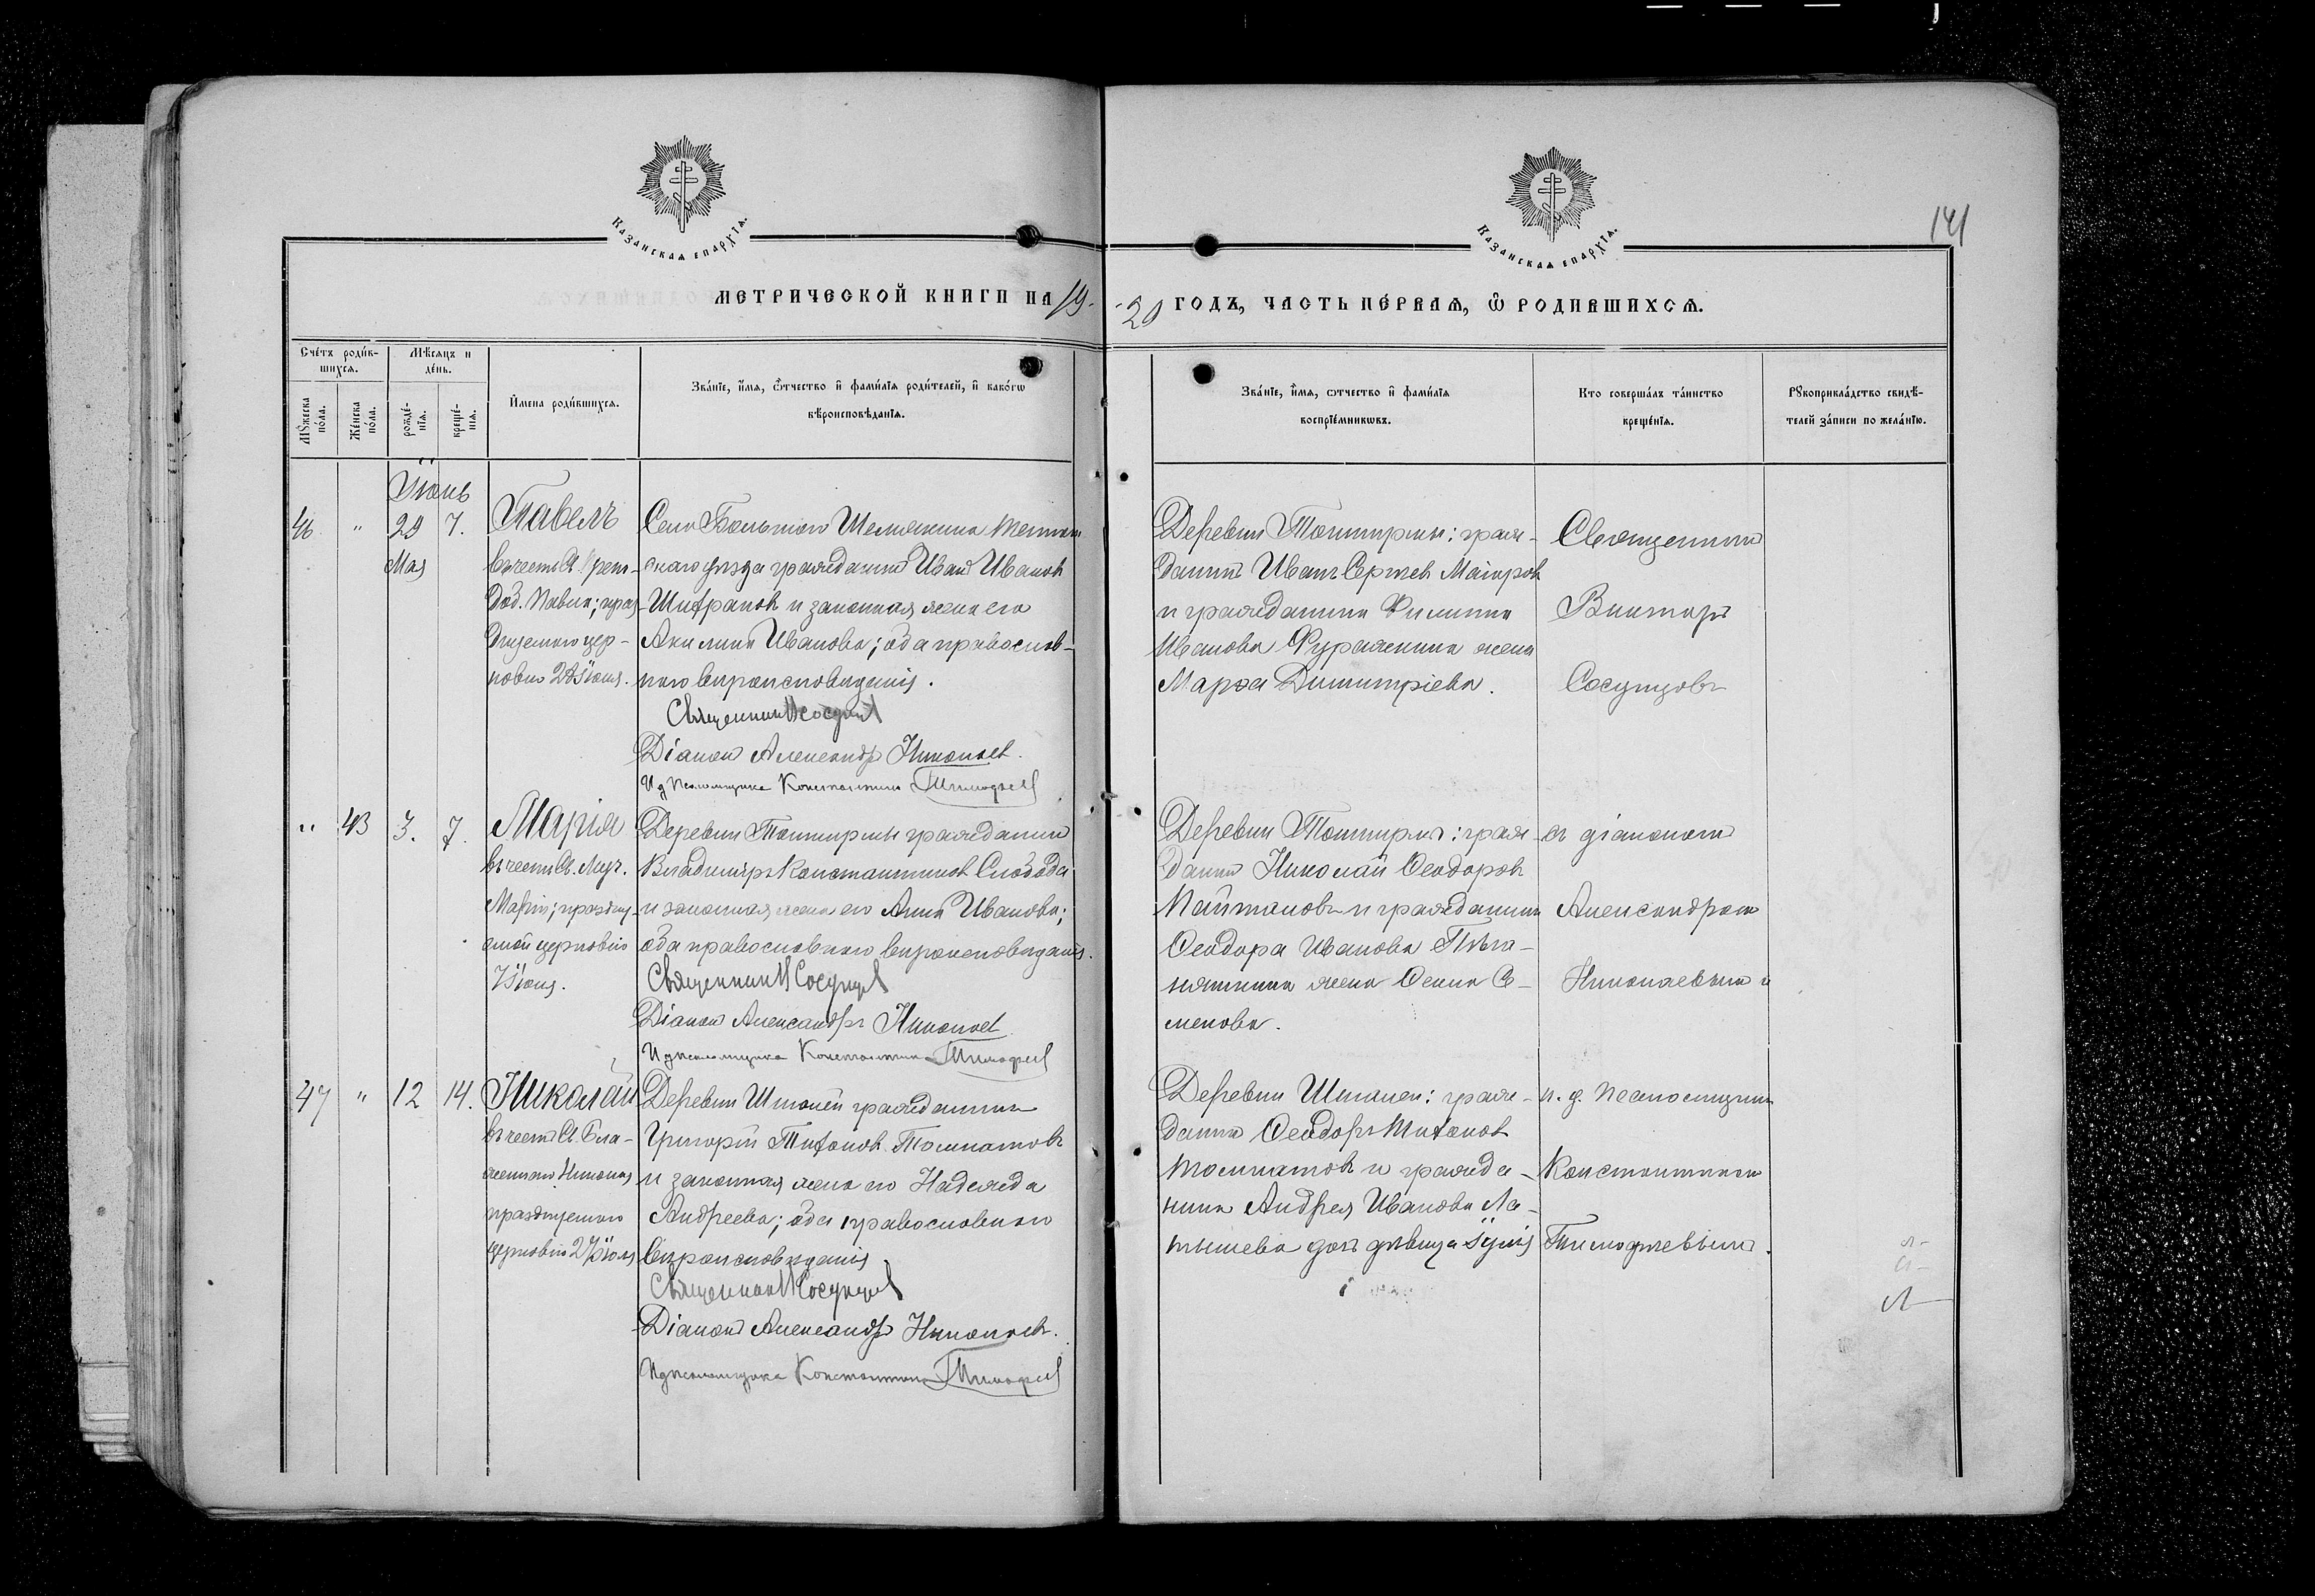 141
Казанская епархїѧ.
Казанская епархїѧ.
МЕТРИЧЕСКОЙ КНИГИ НА 19-
-20 ГОДЪ, ЧАСТЬ ПЕ́РВАѦ, Ѿ РОДИВШИХСѦ.
Сче́тъ роди́в-
шихсѧ.
Мѣ́сѧцъ и
де́нь.
Мꙋ́жеска
по́ла.
Же́нска
по́ла.
рожде́-
нїѧ.
креще́-
нїѧ.
И҆мена роди́вшихсѧ.
Зва́нїе, и҆́мѧ, ѻ҆́тчество и҆ фами́лїѧ роди́телей, и҆ како́гѡ
вѣроисповѣ́данїѧ.
Зва́нїе, и҆́мѧ, ѻтчество и҆ фами́лїѧ
воспрїе́мникѡвъ.
Кто соверша́лъ та́инство
креще́нїѧ.
Рꙋкоприкла́дство свидѣ́-
телей за́писи по жела́нїю.
Їюнь
46 " 29 7. Павелъ
Мая
въ честь Св.
Павла; праз-
днуемаго цер-
ковію 28 Їюня.
Село Большого Шемякина
скаго уѣзда гражданинъ Иванъ Ивановъ
и законная жена его
Акилина Иванова; оба православ-
наго вѣроисповѣданія.
Священникъ В Сосунцовъ
Діаконъ Александръ Николаевъ.
И д псаломщика Константинъ Тимофеев
Деревни : граж-
данинъ Иванъ Сергѣевъ Майоровъ
и гражданина Филиппа
Иванова жена
Марѳа Димитріева.
Священникъ
Викторъ
Сосунцовъ
" 43 3. 7. Марія
въ честь Св. Муч.
Маріи; праздну-
емой церковію
7 Їюня.
Деревни гражданинъ
Владиміръ Константиновъ Слобода
и законная жена его Анна Иванова;
оба православнаго вѣроисповѣданія.
Священникъ В Сосунцов
Діаконъ Александръ Николаев
И д псаломщика Константинъ Тимофеев
Деревни : граж-
данинъ Николай Ѳеодоровъ
и гражданина
Ѳеодора Иванова
жена Се-
менова.
съ діакономъ
Александромъ
Николаевымъ и
47 " 12 14. Николай
въ честь Св. Бла-
женнаго Николая
празднуемаго
церковію 27 Їюля
Деревни гражданинъ
Григорій Тихоновъ
и законная жена его Надежда
Андреева; оба православнаго
вѣроисповѣданія
Священникъ В Сосунцов
Діаконъ Александръ Николаевъ.
И д псаломщика Константинъ Тимофеев
Деревни : граж-
данинъ Ѳеодоръ Тихоновъ
и гражда-
нина Андрея Иванова Ла-
тышева дочь дѣвица Їулія
и. д. псаломщика
Константиномъ
Тимофѣевымъ.